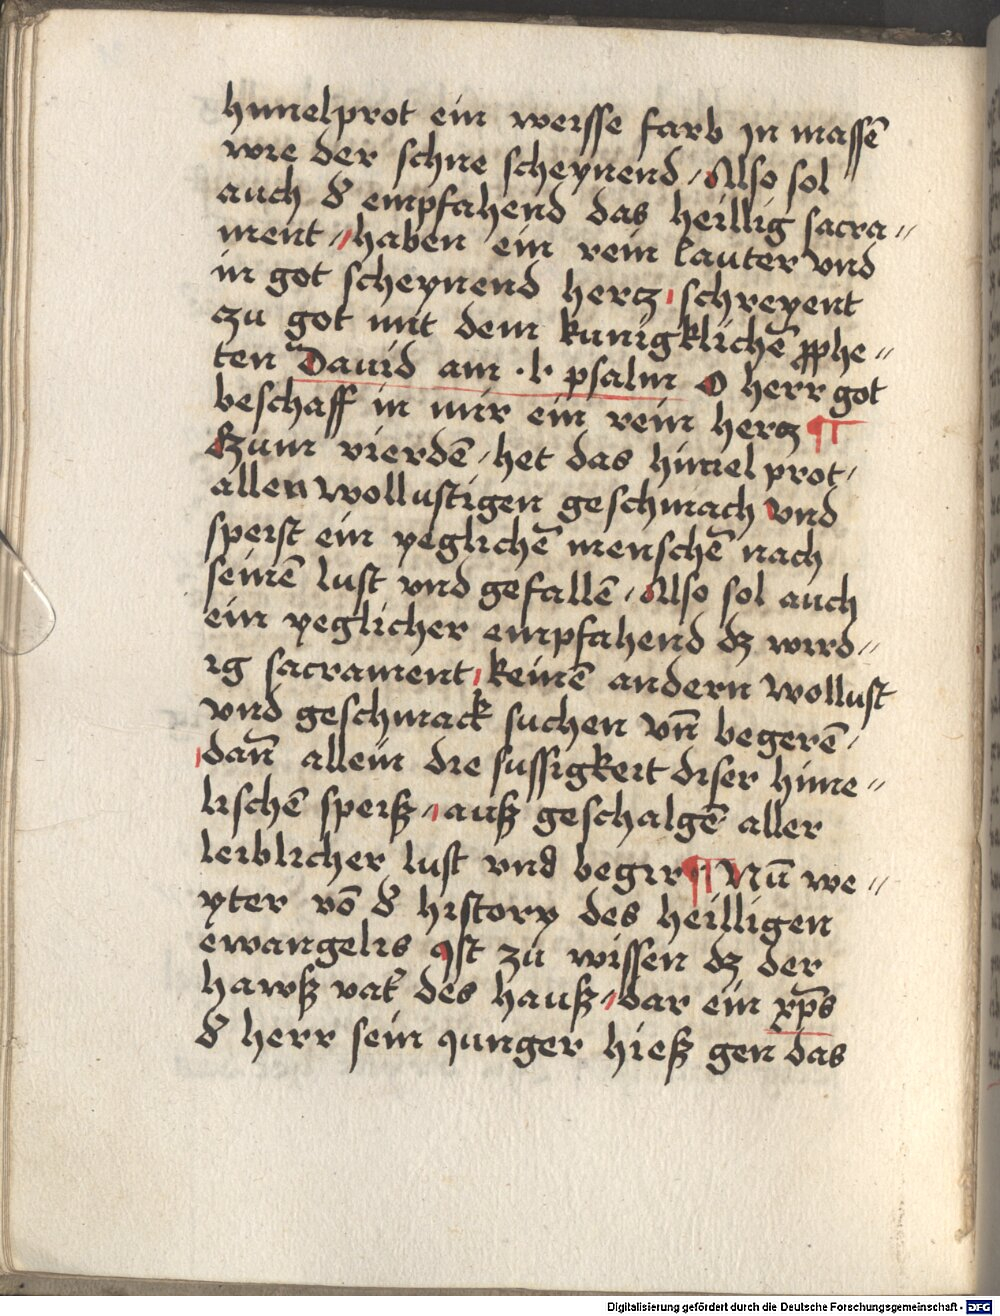 himelprot ein weisse farb in massē
wie der schne scheynend / Also sol
auch d̕ empfahend das heillig sacra //
ment / haben ein rein lauter vnd
in got scheynend hertz / schreyent
czu got mit dem kunigklichē ꝓphe //
ten Dauid am · l · psalm O herr got
beschaff in mir ein rein hertz ¶
Czum vierdē / het das himel prot /
allen wollustigen geschmach vnd
speist ein yeglichē menschē nach
seinē lust vnd gefallē / Also sol auch
ein yeglicher empfahend dz wird //
ig sacrament / keinē andern wollust
vnd geschmack suchen vn̄ begerē /
dan̄ allein die sussigkeit diser hime //
lischē speiß / auß geschalgē aller
leiblicher lust vnd begir ¶ Nū we //
yter vō d̕ history des heilligen
ewangelis Ist zu wissen dz der
hawß vat̕ des hauß / dar ein xp̄s
d̕ herr sein iunger hieß gen das
Digitalisierung gefördert durch die Deutsche Forschungsgemeinschaft - DFG